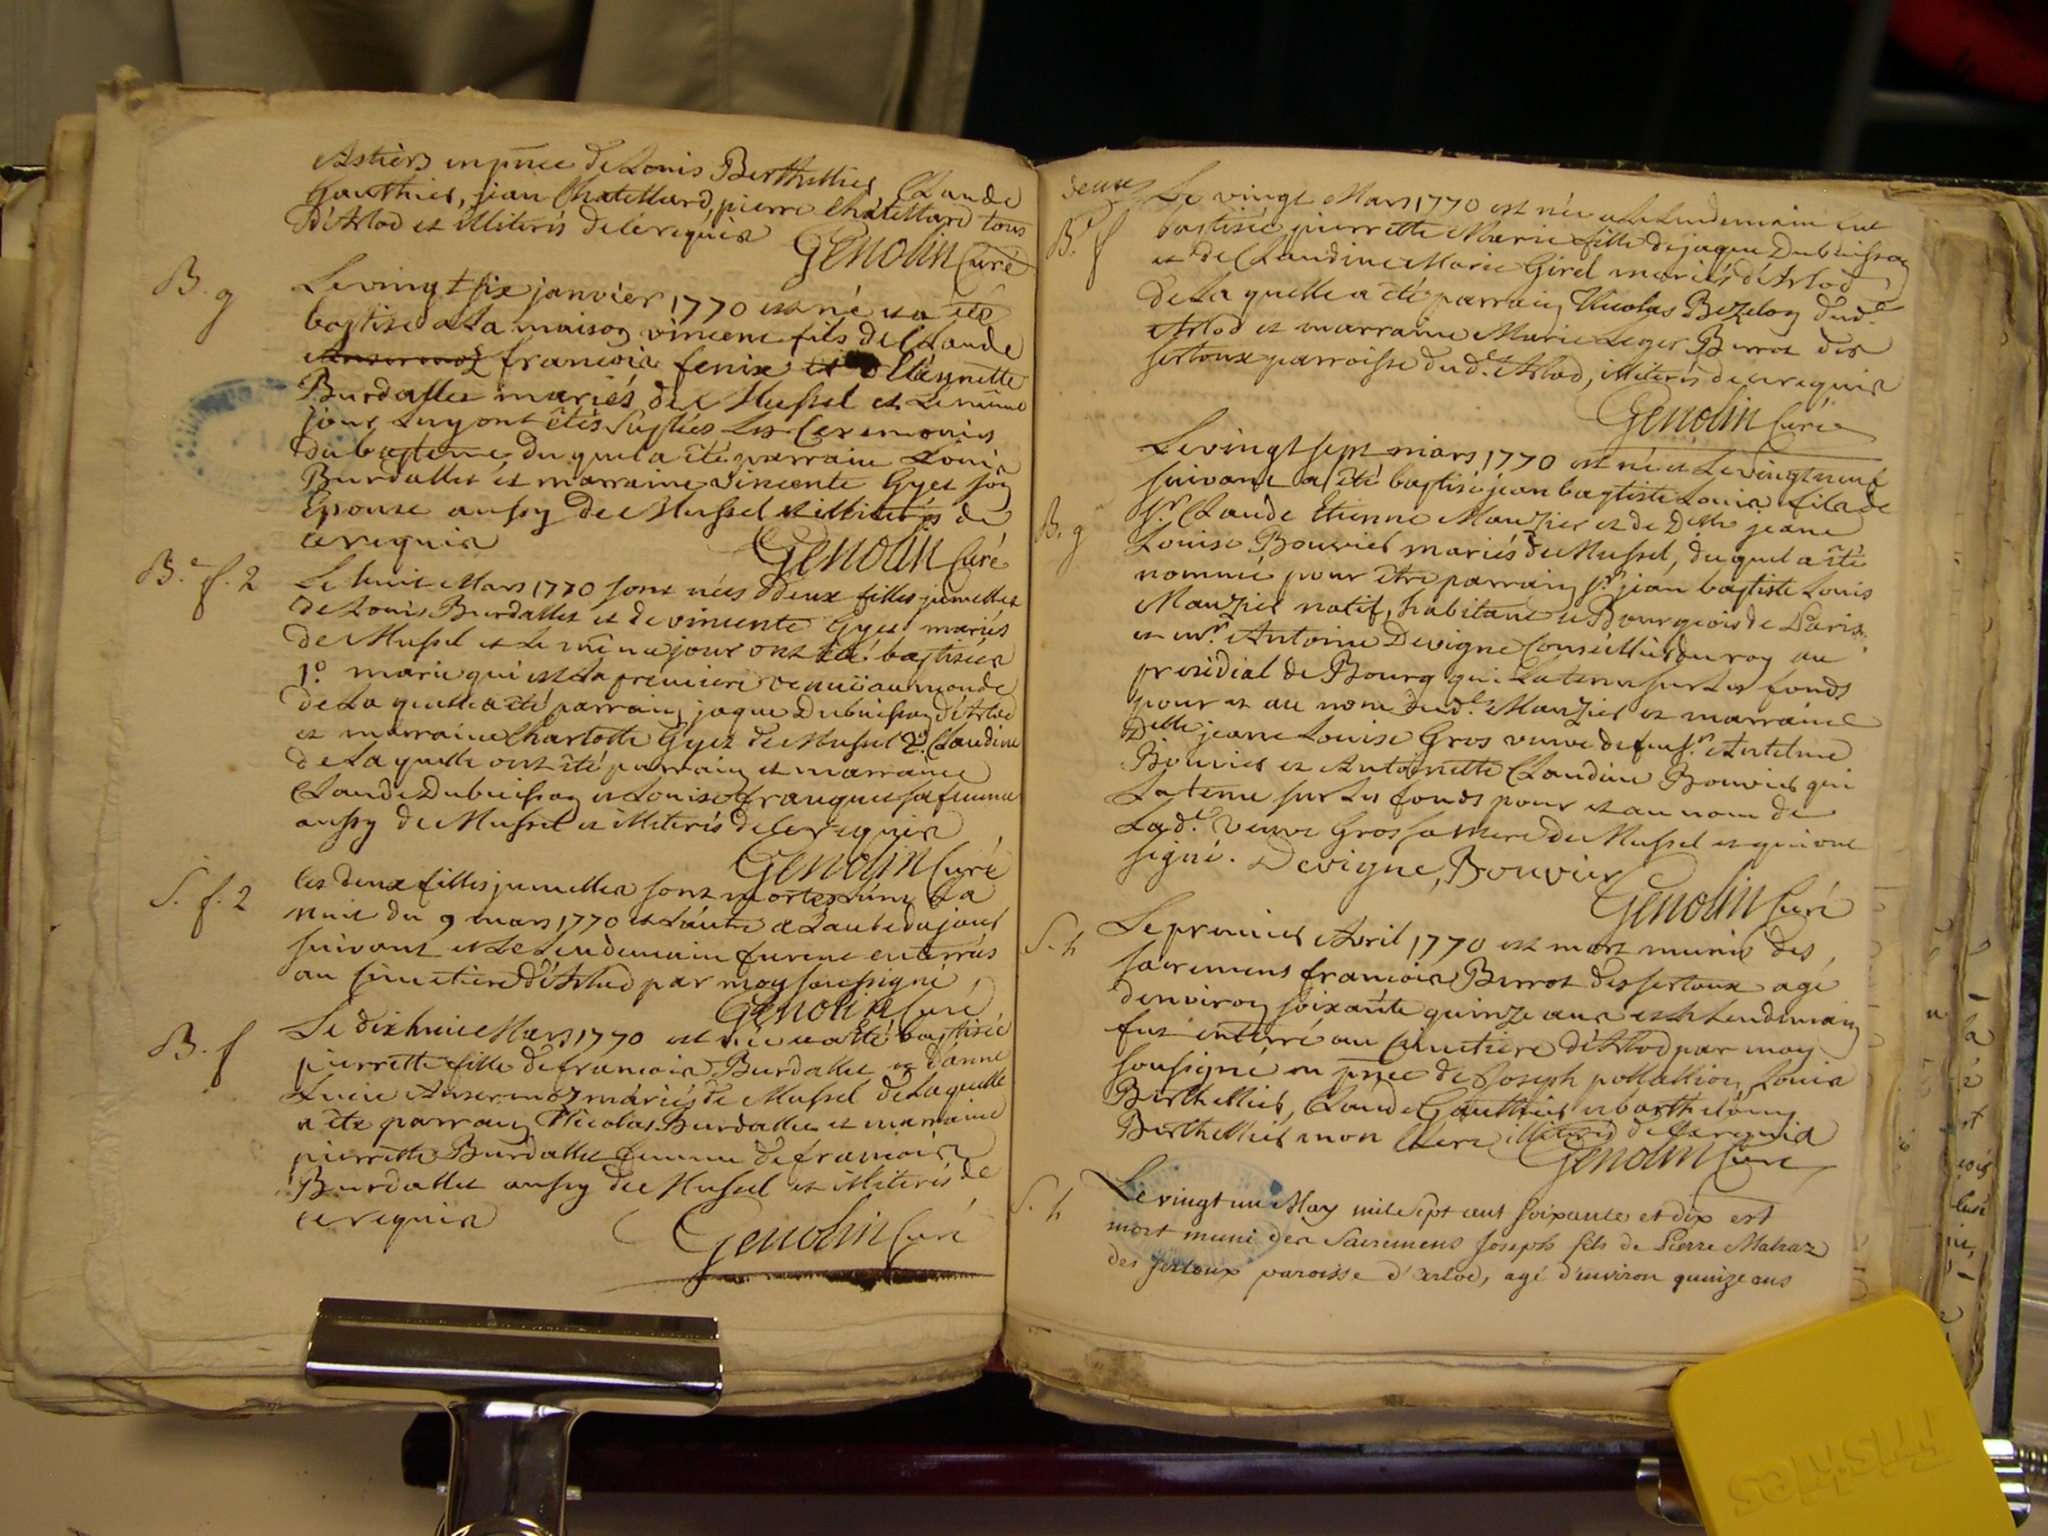 Astiers en pnce de Louis Berthellier, Claude
Gauthier, jean Chatellard, pierre Chatellard tous
D'Arlod et illiterés de ce requis Genolin Curé
B. g
Le vingt six janvier 1770 est né et a été
baptisé a la maison vincent fils de Claude
Ansermoz francois fenix et d'Etiennette
Burdallet mariés de Mussel et le même
jour luy ont êtés suplées les Ceremonies
du bapteme du quel a êté parrain Louis
Burdallet et marraine vincente Gyet son
Epouse aussy de Mussel et illiterés de
ce requis Genolin Curé
B.e f. 2
Le huit Mars 1770 sont nées deux filles jumelles
de Louis Burdallet et de vincente Gyet mariés
de Mussel et le même jour ont été baptisées
1º. marie qui est la premiere venüe au monde
de la quelle a êté parrain jaque Dubuisson d'Arlod
et marraine Charlotte Gyet de Mussel 2º. Claudine
de la quelle ont êté parrain et marraine
Claude Dubuisson et Louise franquet sa femme
aussy de Mussel et illiterés de ce requis
Genolin Curé
S. f. 2
les deux filles jumelles sont mortes l'une la
nuit du 9 mars 1770 et l'autre a l'aube du jour
suivant et le lendemain furent enterrés
au simetiere d'Arlod par moy soussigné
Genolin Curé
B. f
Le dix huit Mars 1770 est née et a été baptisée
pierrette fille de francois Burdallet et d'anne
Lucie Ansermoz mariés de Mussel de la quelle
a êté parrain Nicolas Burdallet et marraine
pierrette Burdallet femme de francois
Burdallet aussy de Mussel et illiterés de
ce requis
Genolin Curé
deux
B.e f
Le vingt Mars 1770 est née et le lendemain fut
baptisée pierrette Marie fille de jaque Dubuisson
et de Claudine Marie Girel mariés d'Arlod
de la quelle a êté parrain Nicolas Bezelon dud.
Arlod et marraine Marie Leger Berrot des
sertoux parroisse dud. Arlod, illiterés de ce requis
Genolin Curé
B. g
Le vingt sept mars 1770 est né et le vingt neuf
suivant a êté baptisé jean baptiste Louis fils de
Sr. Claude Etienne Mauzier et de Dlle jeane
Louise Bouvier mariés de Mussel, du quel a êté
nommé pour être parrain Sr jean baptiste Louis
Mauzier natif, habitant et Bourgeois de Paris
et mr. Antoine Devigne Conseiller du roy au
presidial de Bourg qui l'a tenu sur les fonds
pour et au nom dud. Mauzier et marraine
Dlle jeane Louise Gros veuve de feu Sr Antelme
Bouvier et Antoinette Claudine Bouvier qui
l'a tenu sur les fonds pour et au nom de
lad.e veuve Gros sa mere de Mussel et qui ont
signé. Devigne, Bouvier
Genolin Curé
S. h
Le premier Avril 1770 est mort munis des
sacremens francois Berrot des sertoux agé
d'environ soixante quinze ans et le lendemain
fut enterré au cimetiere d'Arlod par moy
soussigné en pnce de Joseph pollallion, Louis
Berthellier, Claude Gauthier et barthelemy
Berthellier mon Clerc illiterés de ce requis
Genolin Curé
S. h
Le vingt un May mil sept cent soixante et dix est
mort muni des sacremens Joseph fils de Pierre Matraz
des sertoux paroisse d'Arlod, agé d'environ quinze ans